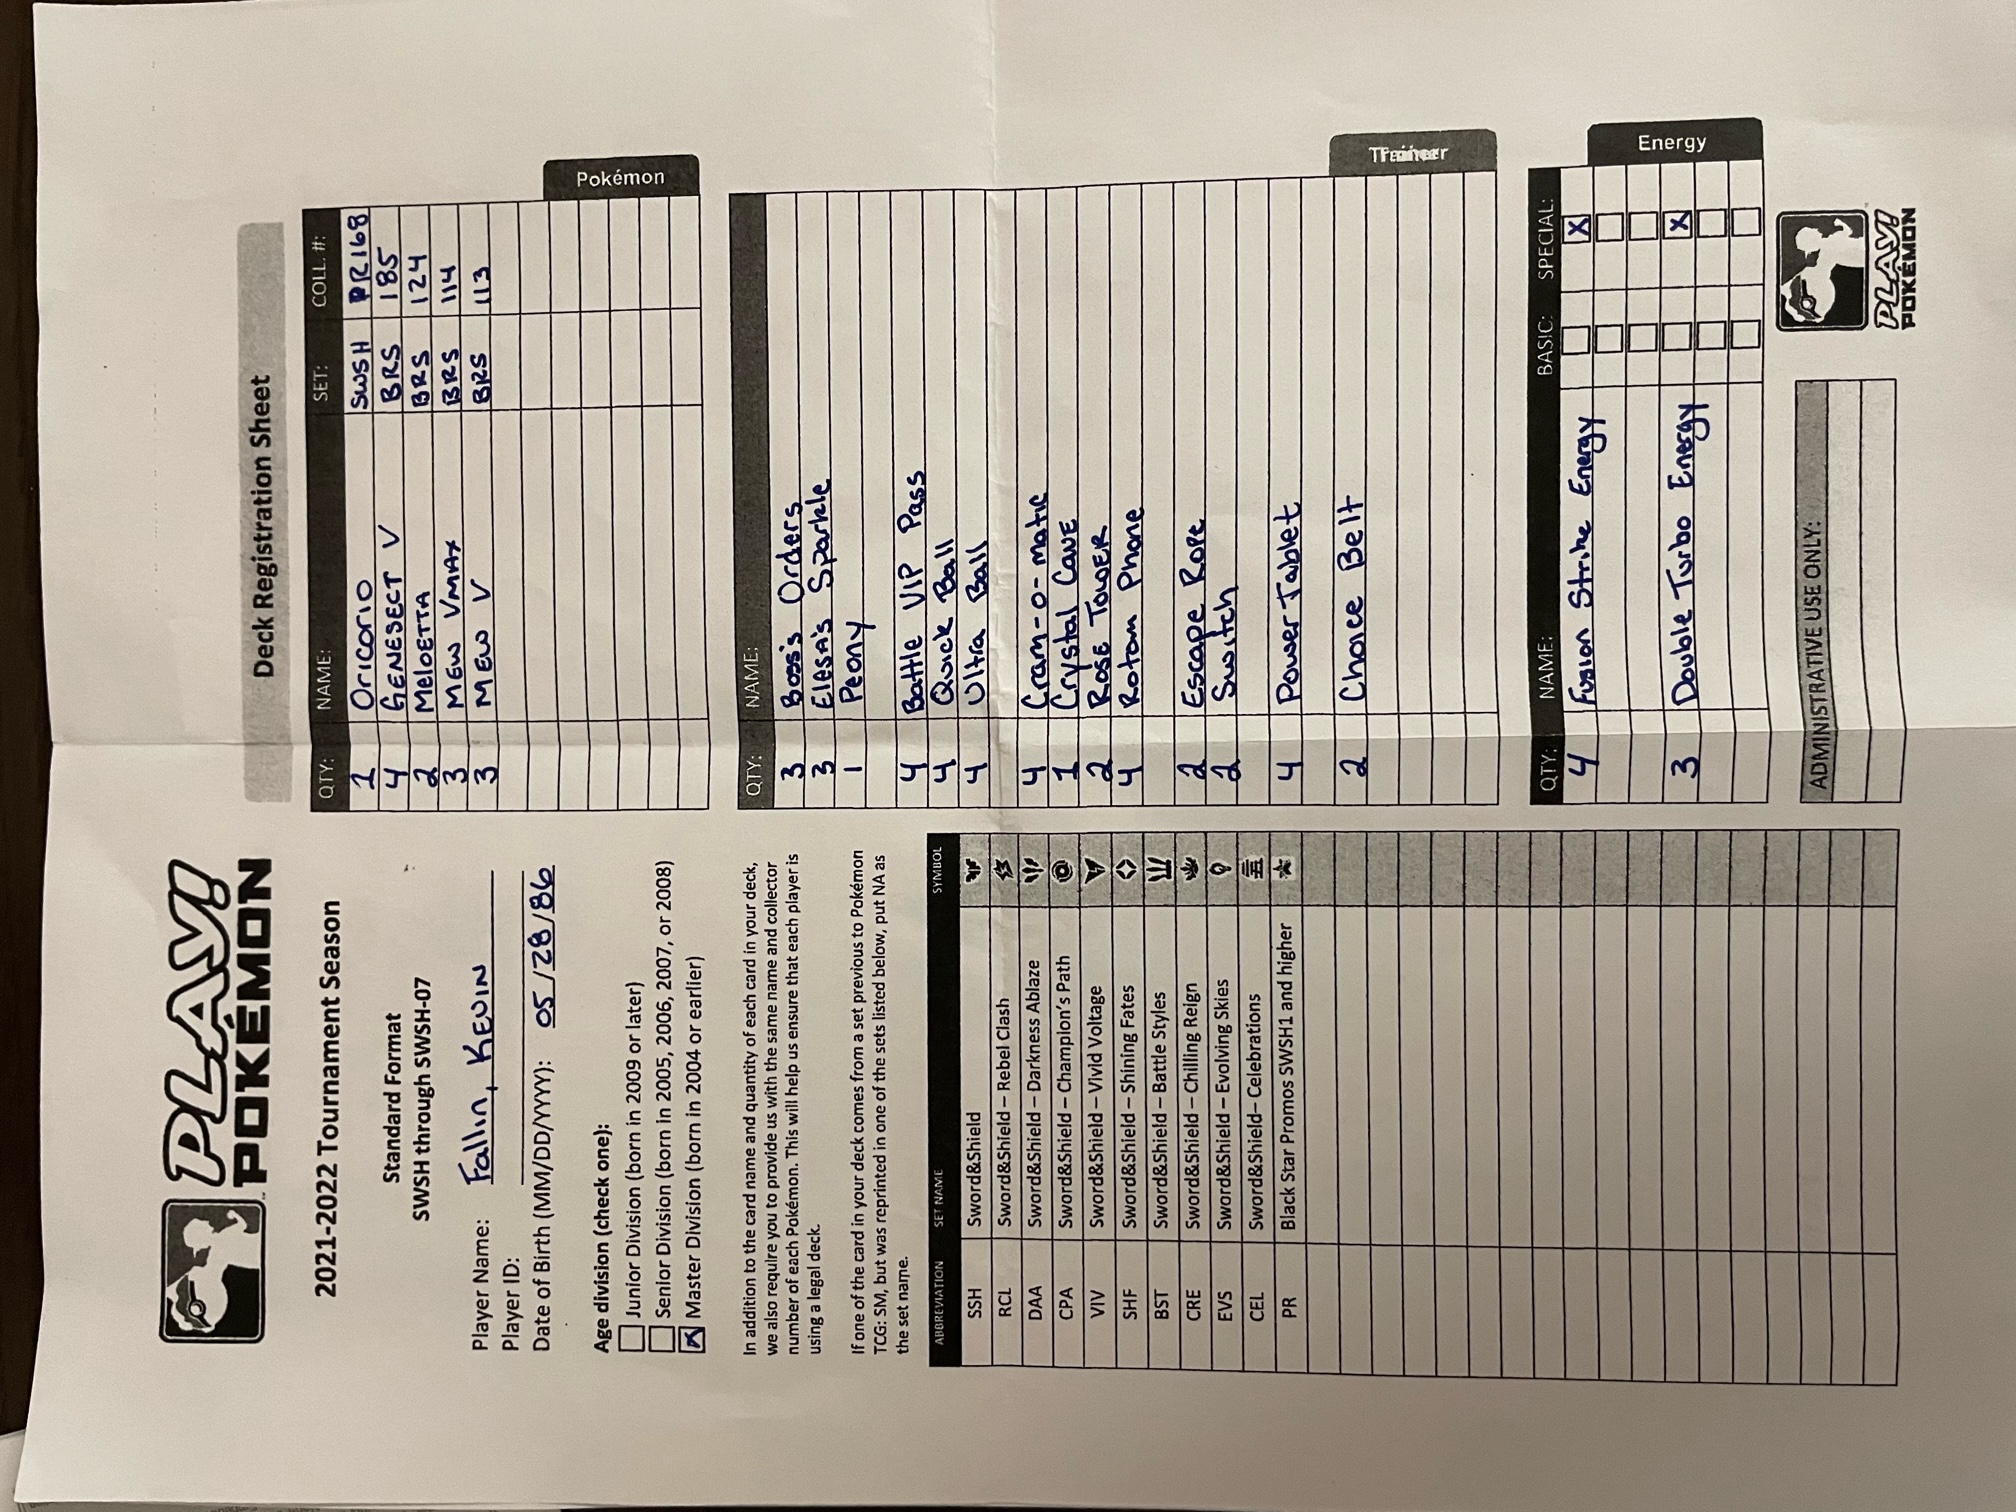 PLAY!
POKÉMON
2021-2022 Tournament Season
Standard Format
SWSH through SWSH-07
Player Name: Fallin, KEVIN
Player ID:
Date of Birth (MM/DD/YYYY): 05/28/86
Age division (check one):
Junior Division (born in 2009 or later)
Senior Division (born in 2005, 2006, 2007, or 2008)
X Master Division (born in 2004 or earlier)
In addition to the card name and quantity of each card in your deck,
we also require you to provide us with the same name and collector
number of each Pokémon. This will help us ensure that each player is
using a legal deck.
If one of the card in your deck comes from a set previous to Pokémon
TCG: SM, but was reprinted in one of the sets listed below, put NA as
the set name.
ABBREVIATION SET NAME SYMBOL
SSH Sword&Shield
RCL Sword&Shield – Rebel Clash
DAA Sword&Shield – Darkness Ablaze
CPA Sword&Shield – Champion's Path
VIV Sword&Shield – Vivid Voltage
SHF Sword&Shield – Shining Fates
BST Sword&Shield – Battle Styles
CRE Sword&Shield – Chilling Reign
EVS Sword&Shield – Evolving Skies
CEL Sword&Shield– Celebrations
PR Black Star Promos SWSH1 and higher
Deck Registration Sheet
QTY: NAME: SET: COLL. #:
1 Oricorio SWSH PR168
4 GENESECT V BRS 185
2 MeloETTA BRS 124
3 MEW VMAX BRS 114
3 MEW V BRS 113
Pokémon
QTY: NAME:
3 Boss's Orders
3 ElesA's Sparkle
1 Peony
4 Battle VIP Pass
4 Quick Ball
4 Ultra Ball
4 Cram-o-matic
1 Crystal CAVE
2 ROSE TOWER
4 Rotom Phone
2 Escape Rope
2 Switch
4 Power Tablet
2 Choice Belt
Trainer
QTY: NAME: BASIC: SPECIAL:
4 Fusion Strike Energy X
3 Double Turbo Energy X
Energy
ADMINISTRATIVE USE ONLY:
PLAY!
POKÉMON